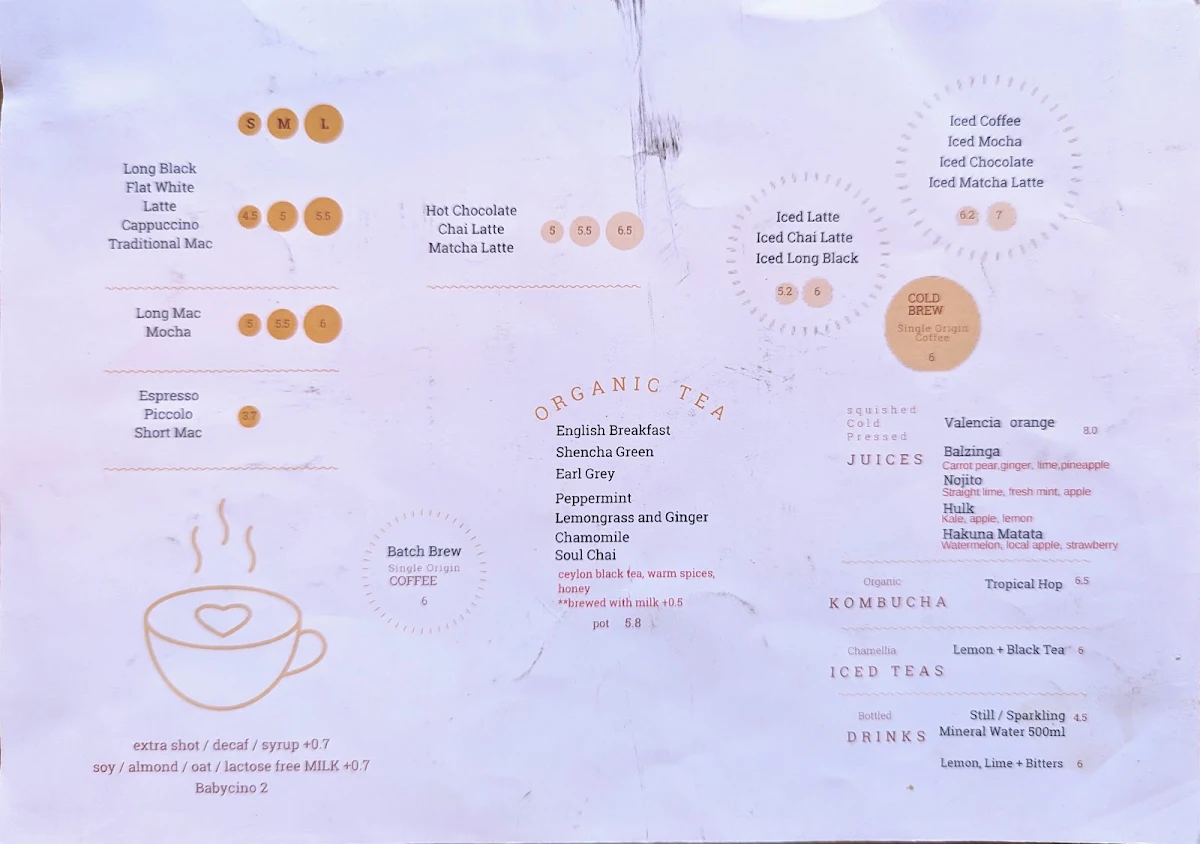 S M L
Long Black
Flat White
Latte
Cappuccino
Traditional Mac
4.5 5 5.5
Long Mac
Mocha
5 5.5 6
Espresso
Piccolo
Short Mac
3.7
Hot Chocolate
Chai Latte
Matcha Latte
5 5.5 6.5
Iced Latte
Iced Chai Latte
Iced Long Black
5.2 6
Iced Coffee
Iced Mocha
Iced Chocolate
Iced Matcha Latte
6.2 7
COLD
BREW
Single Origin
Coffee
6
Batch Brew
Single Origin
COFFEE
6
ORGANIC TEA
English Breakfast
Shencha Green
Earl Grey
Peppermint
Lemongrass and Ginger
Chamomile
Soul Chai
ceylon black tea, warm spices,
honey
**brewed with milk +0.5
pot 5.8
squished
Cold
Pressed
JUICES
Valencia orange 8.0
Balzinga
Carrot pear,ginger, lime,pineapple
Nojito
Straight lime, fresh mint, apple
Hulk
Kale, apple, lemon
Hakuna Matata
Watermelon, local apple, strawberry
Organic
KOMBUCHA
Tropical Hop 6.5
Chamellia
ICED TEAS
Lemon + Black Tea 6
Bottled
DRINKS
Still / Sparkling 4.5
Mineral Water 500ml
Lemon, Lime + Bitters 6
extra shot / decaf / syrup +0.7
soy / almond / oat / lactose free MILK +0.7
Babycino 2